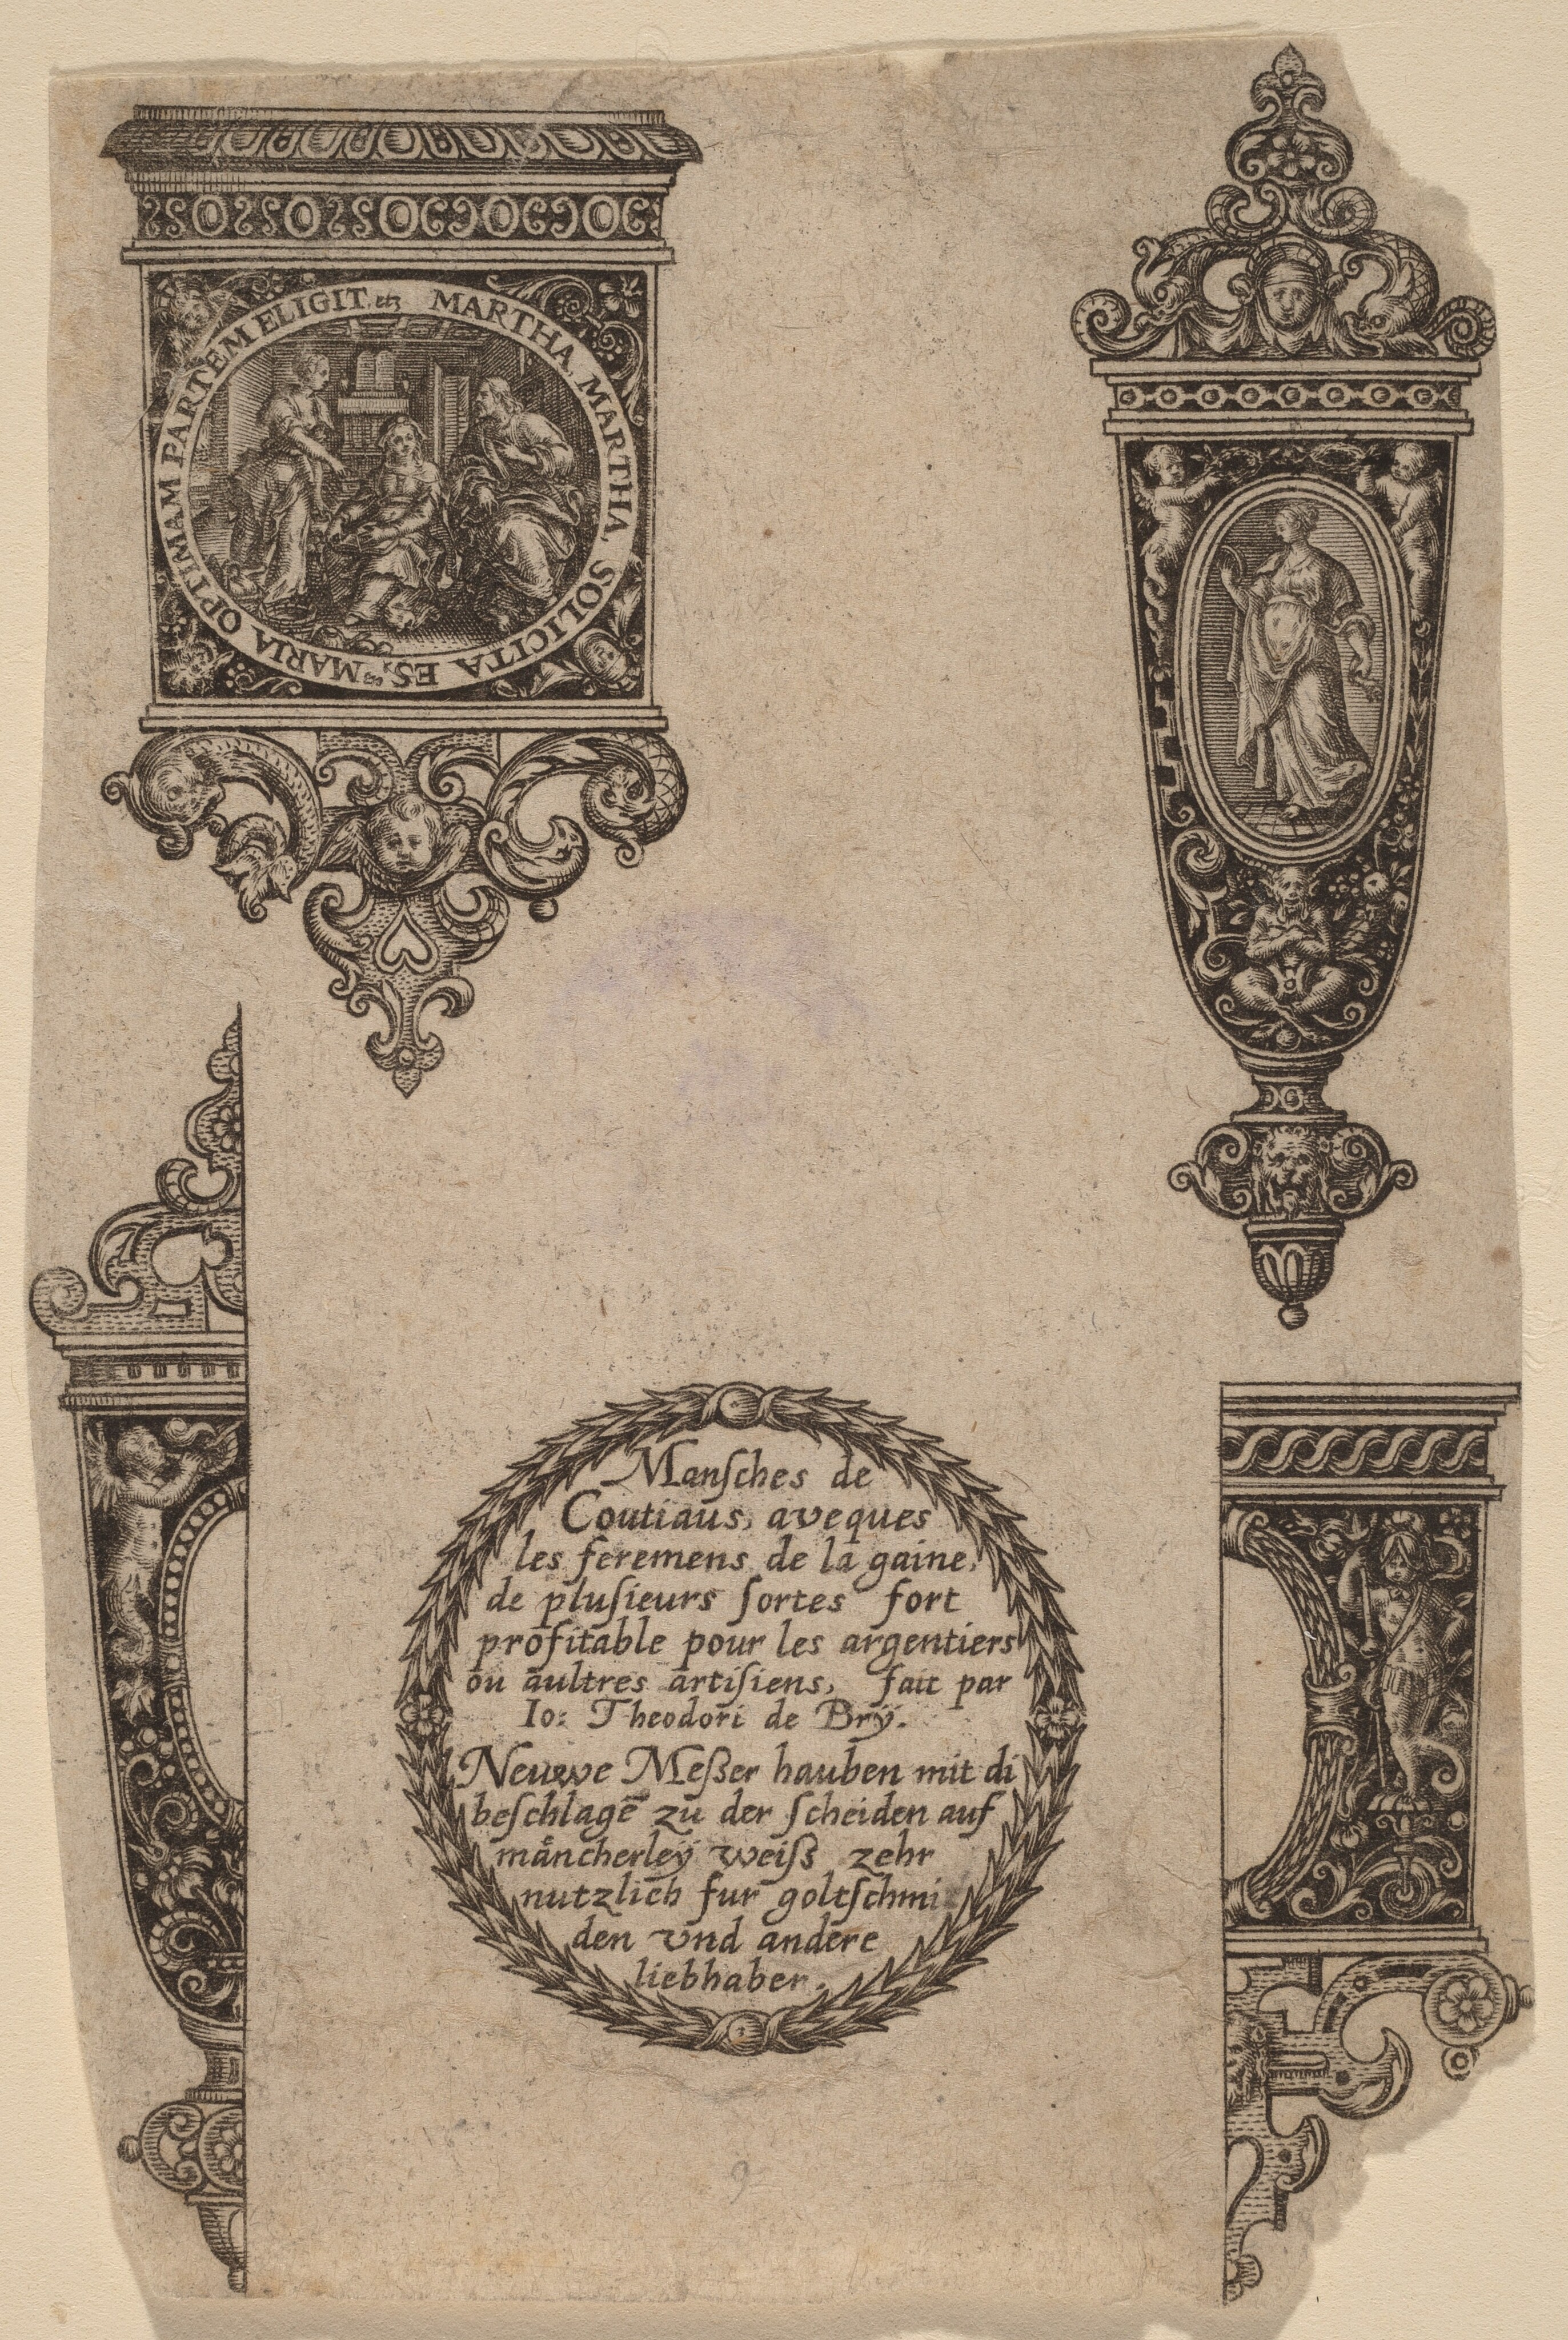 MARTHA MARTHA SOLICITA ES, MARIA OPTIMAM PARTEM ELIGIT etz
Manſches de
Coutiaus, aveques
les feremens de la gaine,
de pluſieurs ſortes fort
profitable pour les argentiers
ou aultres artiſiens, fait par
Io: Theodori de Brÿ.
Neuwe Meßer hauben mit di
beſchlagē zu der ſcheiden auf
mancherleÿ weiß zehr
nutzlich fur goltſchmi
den vnd andere
liebhaber.
9